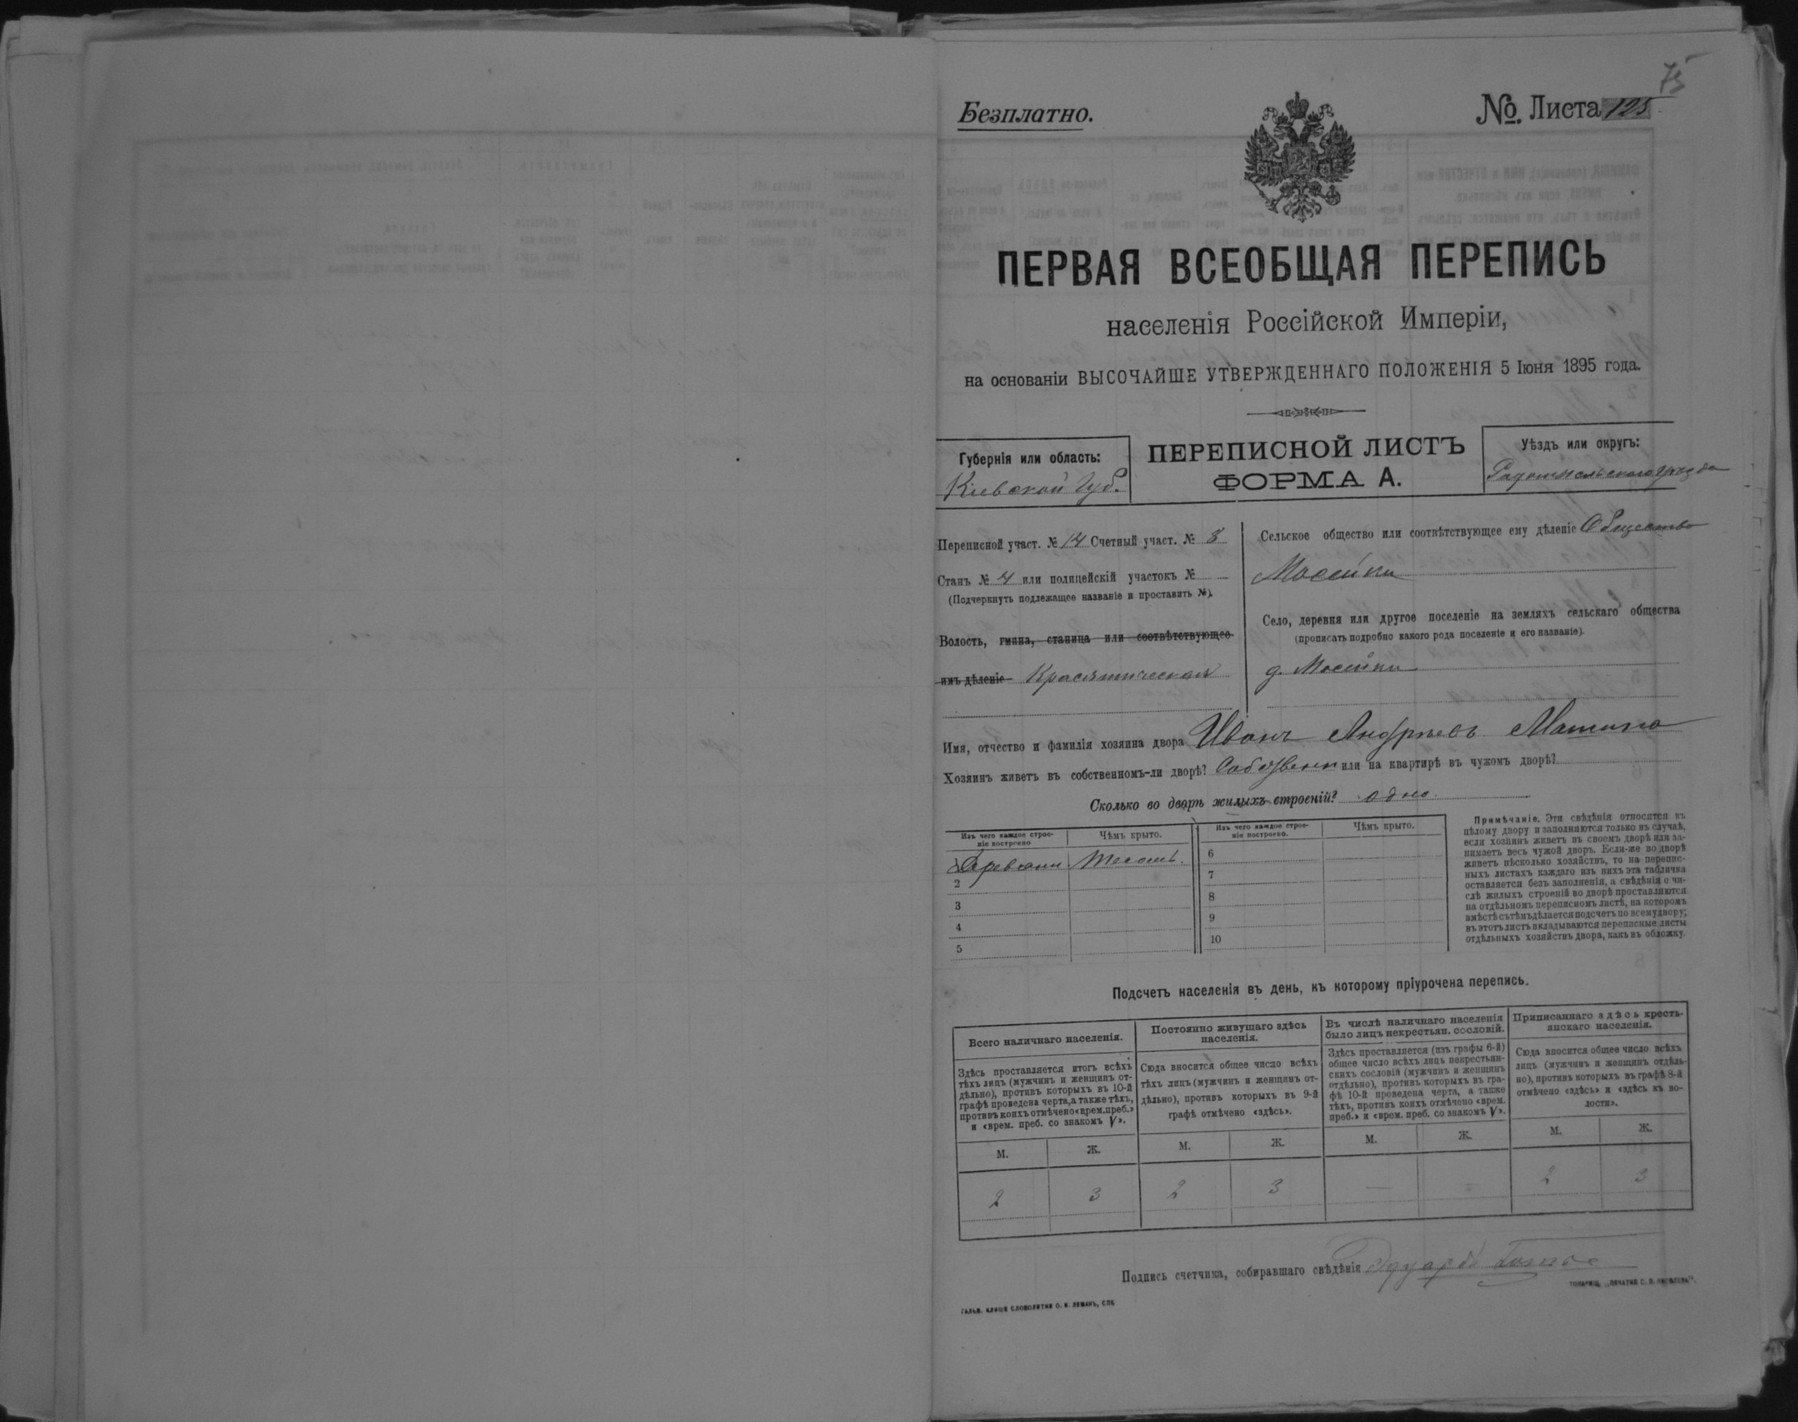 75
Безплатно.
№. Листа 125
ПЕРВАЯ ВСЕОБЩАЯ ПЕРЕПИСЬ
населенія Россійской Имперіи,
на основаніи ВЫСОЧАЙШЕ УТВЕРЖДЕННАГО ПОЛОЖЕНІЯ 5 Іюня 1895 года.
Губернія или область:
Кіевской Губ.
ПЕРЕПИСНОЙ ЛИСТЪ
ФОРМА А.
Уѣздъ или округъ:
Радомысльскаго уѣзда
Переписной участ. № 14 Счетный участ. № 8
Станъ № 4 или полицейскій участокъ № —
(Подчеркнуть подлежащее названіе и проставить №).
Волость, гмина, станица или соотвѣтствующее
имъ дѣленіе Красятическая
Сельское общество или соотвѣтствующее ему дѣленіе Общество
Мосейки
Село, деревня или другое поселеніе на земляхъ сельскаго общества
(прописать подробно какого рода поселеніе и его названіе).
д. Мосейки
Имя, отчество и фамилія хозяина двора Иванъ Андрѣевъ
Хозяинъ живетъ въ собственномъ-ли дворѣ? или на квартирѣ въ чужомъ дворѣ?
Сколько во дворѣ жилыхъ строеній? одно.
Изъ чего каждое строе-
ніе построено
Чѣмъ крыто.
Изъ чего каждое строе-
ніе построено.
Чѣмъ крыто.
2
3
4
5
6
7
8
9
10
Примѣчаніе. Эти свѣдѣнія относятся къ
цѣлому двору и заполняются только въ случаѣ,
если хозяинъ живетъ въ своемъ дворѣ или за-
нимаетъ весь чужой дворъ. Если-же во дворѣ
живетъ нѣсколько хозяйствъ, то на перепис-
ныхъ листахъ каждаго изъ нихъ эта табличка
оставляется безъ заполненія, а свѣдѣнія о чи-
слѣ жилыхъ строеній во дворѣ проставляются
на отдѣльномъ переписномъ листѣ, на которомъ
вмѣстѣ съ тѣмъ дѣлается подсчетъ по всему двору;
въ этотъ листъ вкладываются переписные листы
отдѣльныхъ хозяйствъ двора, какъ въ обложку.
Подсчетъ населенія въ день, къ которому пріурочена перепись.
Всего наличнаго населенія.
Здѣсь проставляется итогъ всѣхъ
тѣхъ лицъ (мужчинъ и женщинъ от-
дѣльно), противъ которыхъ въ 10-й
графѣ проведена черта, а также тѣхъ,
противъ коихъ отмѣчено «врем. преб.»
и «врем. преб. со знакомъ V».
Постоянно живущаго здѣсь
населенія.
Сюда вносится общее число всѣхъ
тѣхъ лицъ (мужчинъ и женщинъ от-
дѣльно), противъ которыхъ въ 9-й
графѣ отмѣчено «здѣсь».
Въ числѣ наличнаго населенія
было лицъ некрестьян. сословій.
Здѣсь проставляется (изъ графы 6-й)
общее число всѣхъ лицъ некрестьян-
скихъ сословій (мужчинъ и женщинъ
отдѣльно), противъ которыхъ въ гра-
фѣ 10-й проведена черта, а также
тѣхъ, противъ коихъ отмѣчено «врем.
преб.» и «врем. преб. со знакомъ V».
Приписаннаго здѣсь кресть-
янскаго населенія.
Сюда вносится общее число всѣхъ
лицъ (мужчинъ и женщинъ отдѣль-
но), противъ которыхъ въ графѣ 8-й
отмѣчено «здѣсь» и «здѣсь къ во-
лости».
М. Ж. М. Ж. М. Ж. М. Ж.
2 3 2 3 — — 2 3
Подпись счетчика, собиравшаго свѣдѣнія Эдуардъ